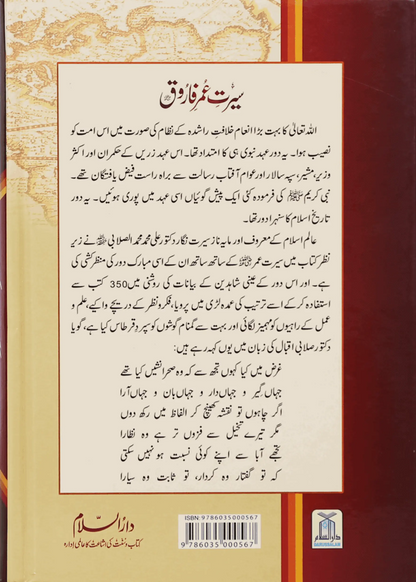 سیرتِ عمر فاروقؓ
اللہ تعالیٰ کا بہت بڑا انعام خلافتِ راشدہ کے نظام کی صورت میں اس امت کو
نصیب ہوا۔ یہ دور عہدِ نبوی ہی کا امتداد تھا۔ اس عہدِ زریں کے حکمران اور اکثر
وزیر، مشیر، سپہ سالار اور عوام آفتابِ رسالت سے براہِ راست فیض یافتگان تھے۔
نبی کریم ﷺ کی فرمودہ کئی ایک پیش گوئیاں اسی عہد میں پوری ہوئیں۔ یہ دور
تاریخِ اسلام کا سنہرا دور تھا۔
عالم اسلام کے معروف اور مایہ ناز سیرت نگار دکتور علی محمد محمد الصلابی ﷾ نے زیرِ
نظر کتاب میں سیرت عمر ؓ کے ساتھ ساتھ ان کے اسی مبارک دور کی منظر کشی کی
ہے۔ اور اس دور کے عینی شاہدین کے بیانات کی روشنی میں 350 کتب سے
استفادہ کر کے اسے ترتیب کی عمدہ لڑی میں پرویا، فکر و نظر کے دریچے وا کیے، علم و
عمل کے راہیوں کو مہمیز لگائی اور بہت سے گمنام گوشوں کو سپردِ قرطاس کیا ہے، گویا
دکتور صلابی اقبال کی زبان میں یوں کہہ رہے ہیں:
غرض میں کیا کہوں تجھ سے کہ وہ صحرا نشیں کیا تھے
جہاں گیر و جہاں دار و جہاں بان و جہاں آرا
اگر چاہوں تو نقشہ کھینچ کر الفاظ میں رکھ دوں
مگر تیرے تخیل سے فزوں تر ہے وہ نظارا
تجھے آبا سے اپنے کوئی نسبت ہو نہیں سکتی
کہ تو گفتار وہ کردار، تو ثابت وہ سیارا
ISBN: 9786035000567
9 786035 000567
دارالسلام
کتاب و سنت کی اشاعت کا عالمی ادارہ
دارالسلام
DARUSSALAM